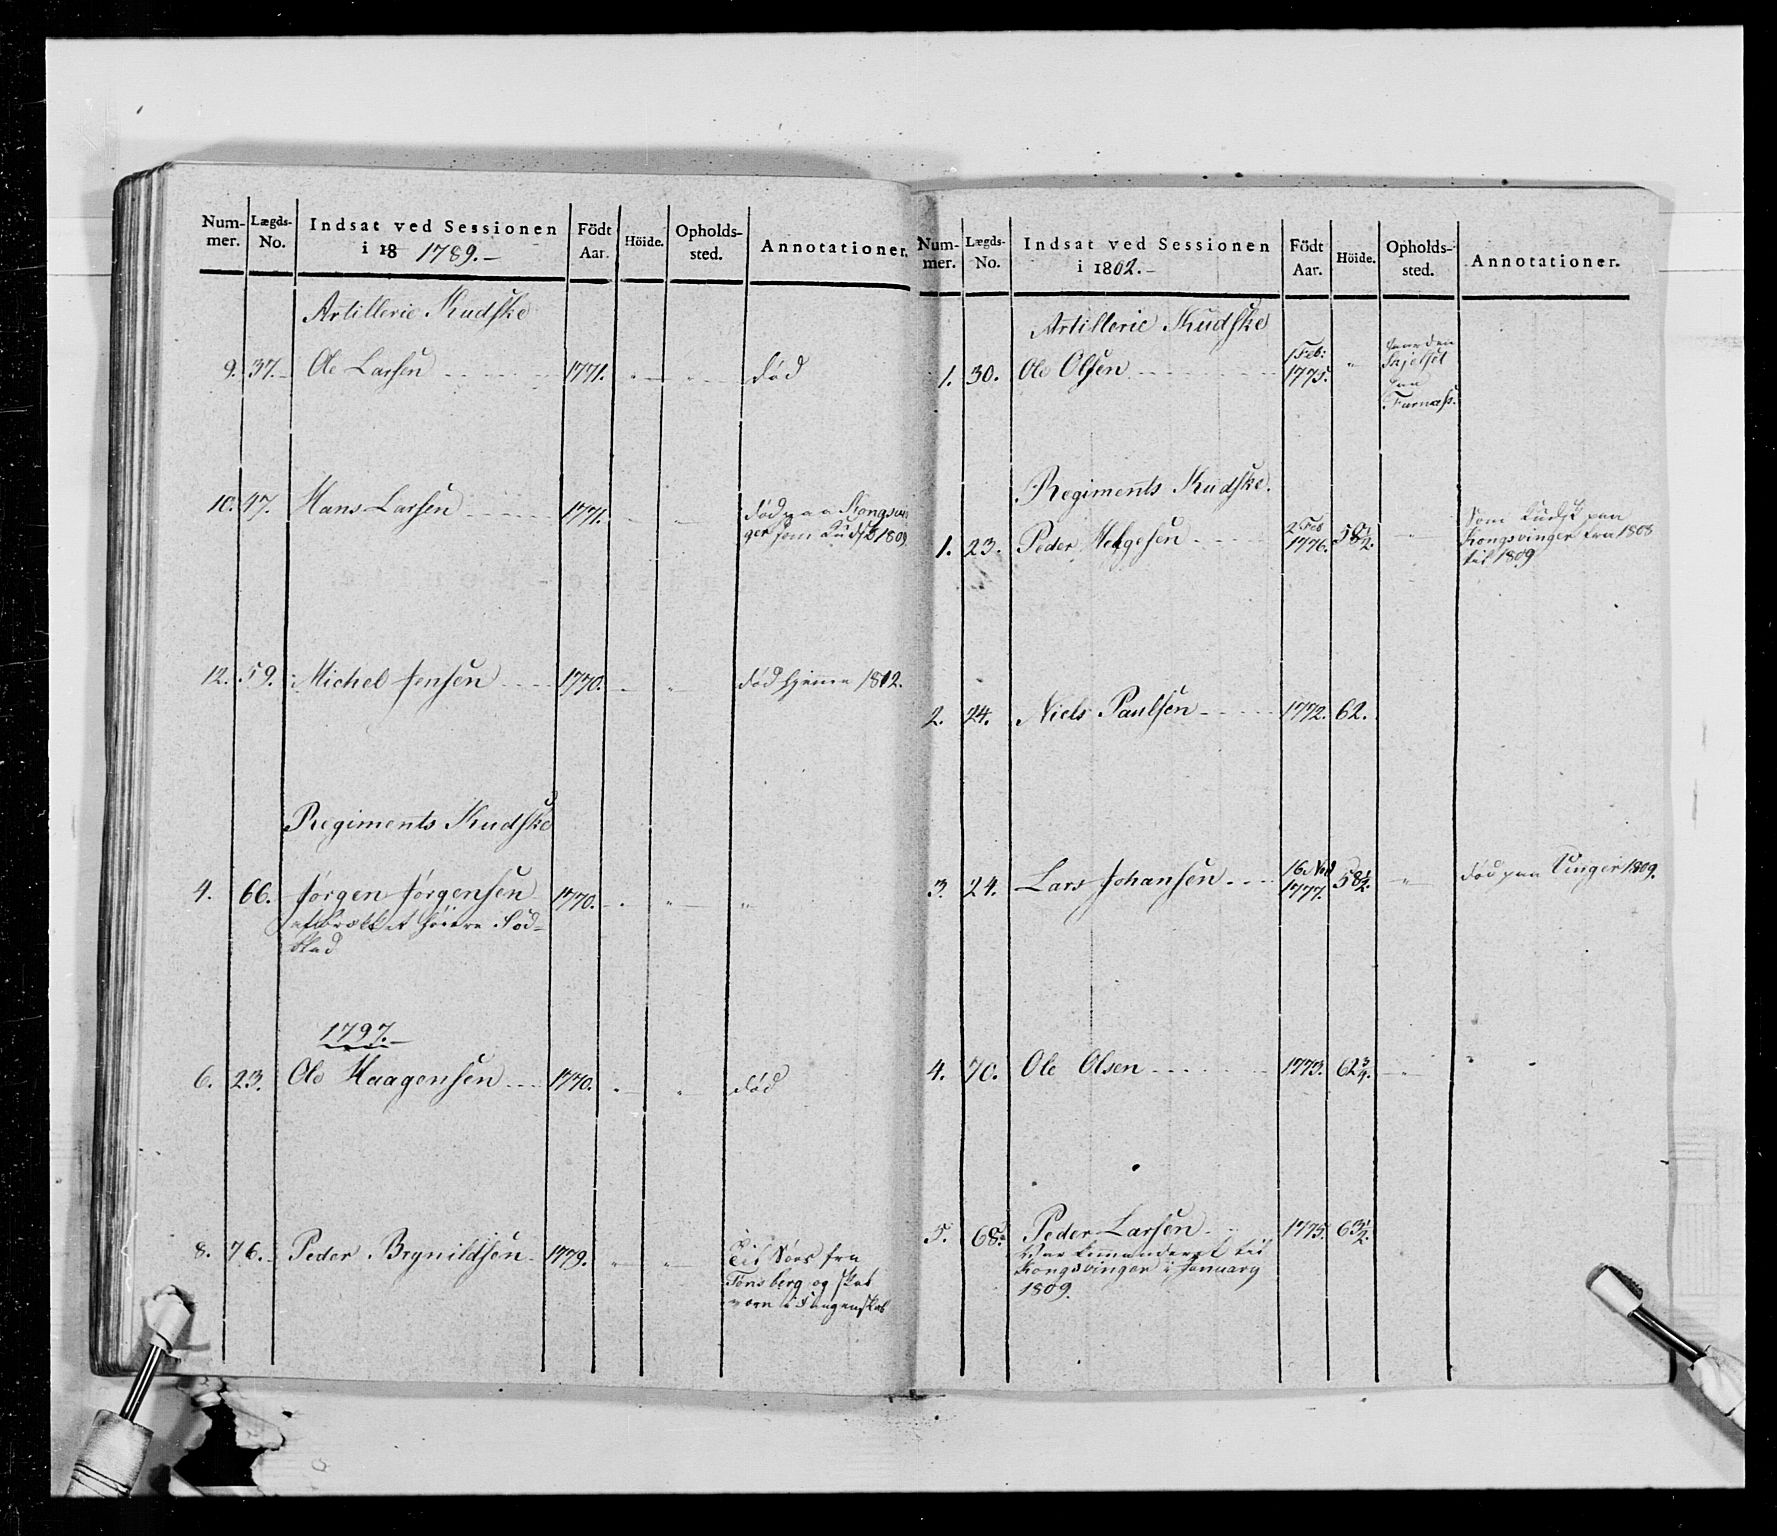 Num-mer. Lægds-No. Indsat ved Sessionen i 18 1789.- Födt Aar. Höide. Opholds-sted. Annotationer.
Artillerie Kudske
9. 37. Ole Larsen 1771. död
10. 47. Hans Larsen 1771. död paa Kongsvin
ger som Kudsk 1809
12. 59. Michel Jensen 1770. död hjeme 1812.
Regiments Kudske
4. 66. Jørgen Jørgensen 1770. "
1797.
6. 23. Ole Haagensen 1770. död
8. 76. Peder Brynildsen 1779. "
Tönsberg og
Num-mer. Lægds-No. Indsat ved Sessionen i 1802.- Födt Aar. Höide. Opholds-sted. Annotationer.
Artillerie Kudske
1. 30. Ole Olsen 1 Feb: 1775. "
Furnæss.
Regiments Kudske.
1. 23. Peder Helgesen 2 Feb 1776. 58 1/2. Som Kudsk paa
Kongsvinger fra 1808
til 1809
2. 24. Niels Paulsen 1772. 62.
3. 24. Lars Johansen 1777. 58 1/2. " död paa Vinger 1809.
4. 70. Ole Olsen 1773. 62 3/4. "
5. 68. Peder Larsen 1775. 63 1/2.
Var Kommanderet til
Kongsvinger i January
1809.